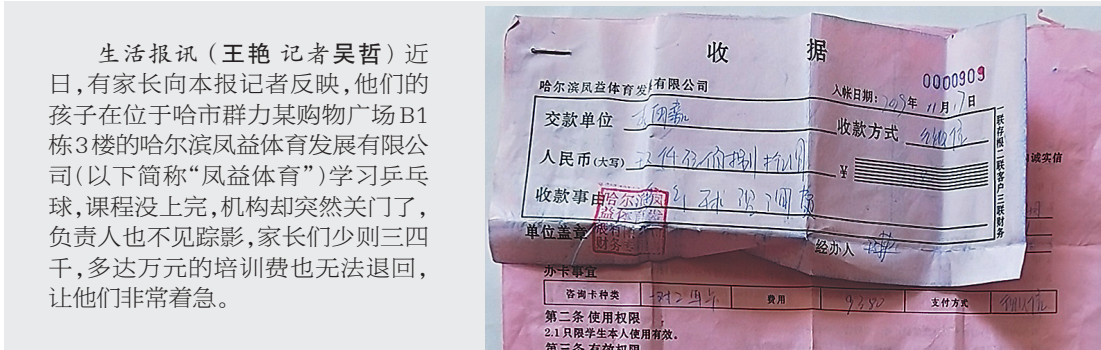 生活报讯(王艳 记者吴哲)近
日,有家长向本报记者反映,他们的
孩子在位于哈市群力某购物广场B1
栋3楼的哈尔滨凤益体育发展有限公
司(以下简称“凤益体育”)学习乒乓
球,课程没上完,机构却突然关门了,
负责人也不见踪影,家长们少则三四
千,多达万元的培训费也无法退回,
让他们非常着急。
收 据
0000909
哈尔滨凤益体育发展有限公司
入帐日期: 2019年11月17日
交款单位
收款方式
人民币(大写)
¥
收款事由
单位盖章
经办人
一联存根二联客户三联财务
诚实信
办卡事宜
咨询卡种类 费用 9380 支付方式
第二条 使用权限
2.1只限学生本人使用有效。
第三条 有效权限